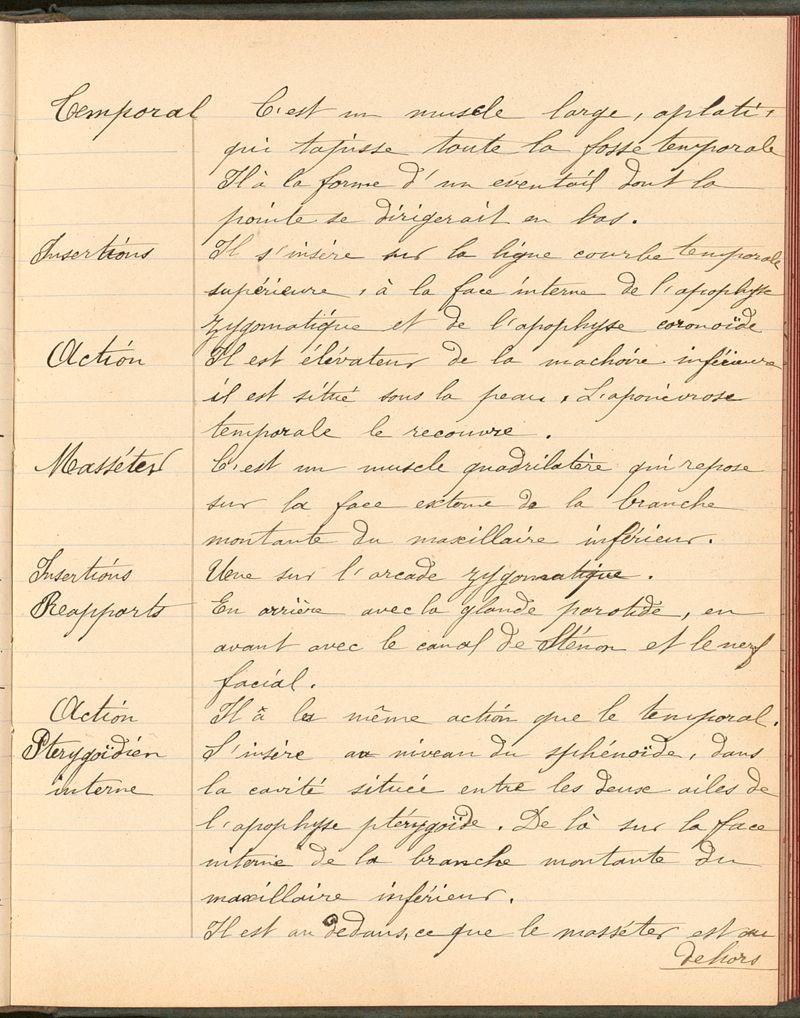 Temporal C'est un muscle large, aplati,
qui tapisse toute la fosse temporale
Il à la forme d'un eventail dont la
pointe se dirigerait en bas.
Insertions Il s'insère sur la ligne courbe temporale
supérieure, à la face interne de l'apophyse
zygomatique et de l'apophyse coronoïde
Action Il est élévateur de la machoire inférieure
il est situé sous la peau, L'aponévrose
temporale le recouvre.
Masséter C'est un muscle quadrilatère qui repose
sur la face externe de la branche
montante du maxillaire inférieur.
Insertions Une sur l'arcade zygomatique.
Reapports En arrière avec la glande parotide, en
avant avec le canal de Sténon et le nerf
facial.
Action Il à la même action que le temporal.
Pterygoïdien S'insère au niveau du sphénoïde, dans
interne la cavité située entre les deux ailes de
l'apophyse ptérygoïde. De là sur la face
interne de la branche montante du
maxillaire inférieur.
Il est au dedans, ce que le masséter est au
dehors